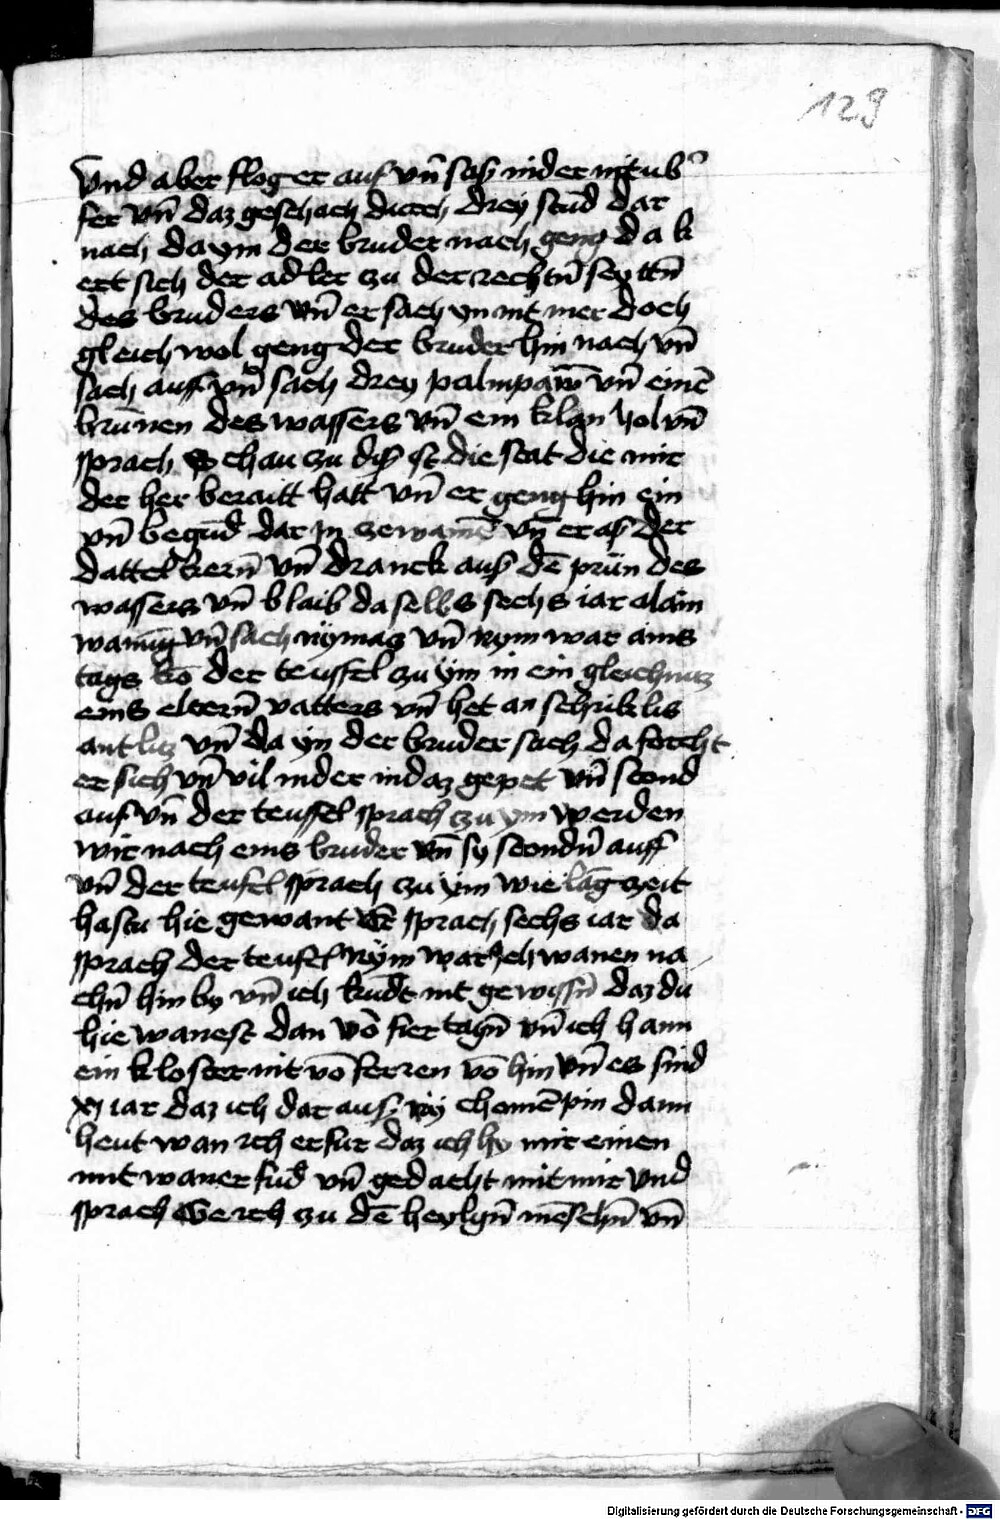 129
Vnd aber flog er auf vn̄ saß nider nit ub᷑
fer vn̄ daz geschach durch drey stūd dar
nach da ym der bruder nach geng da k
ert sich der adler zu der rechtn̄ seyttn̄
des bruders vn̄ er sach yn nit mer doch
gleich wol geng der bruder hin nach vn̄
sach auff vn̄ sach drey palmpaẅ vn̄ einē
brūnen des wassers vn̄ ein klan hol vn̄
sprach Schau zu diß ist die stat die mir
der her beraitt hatt vn̄ er geng hin ein
vn̄ begūd dar jn zewanē vn̄ er aß der
dattel kern̄ vn̄ dranck auß dē prün des
wassers vn̄ blaib da selbs sechs iar alain
wanūg vn̄ sach nÿmāz vn̄ nym war ains
tags kō der teuffel zu ÿm in ein gleichnuz
eins eltern̄ vatters vn̄ het an schriklis
antlitz vn̄ da ÿn der bruder sach da forcht
er sich vn̄ vil nider in daz gepet vn̄ stond
auf vn̄ der teuffel sprach zu ym werden
wir nach eins bruder vn̄ sy stondn̄ auff
vn̄ der teufel sprach zu ÿm wie lāg zeit
hastu hie gewant er sprach sechs iar da
sprach der teufel Nÿm war jch wanen na
chn̄ hin by vn̄ ich kūdt nit gewissn̄ daz du
hie wanest dan vō fier tagn̄ vn̄ ich hann
ein kloster nit vō ferren vō hin vn̄ es sind
xj iar daz ich dar auß nÿ chomē pin dann
heut wan ich erfur daz ich hy mir einen
mit waner fūd vn̄ gedacht mit mir vnd
sprach Ge ich zu dē heylgn̄ mēschn̄ vn̄
Digitalisierung gefördert durch die Deutsche Forschungsgemeinschaft - DFG